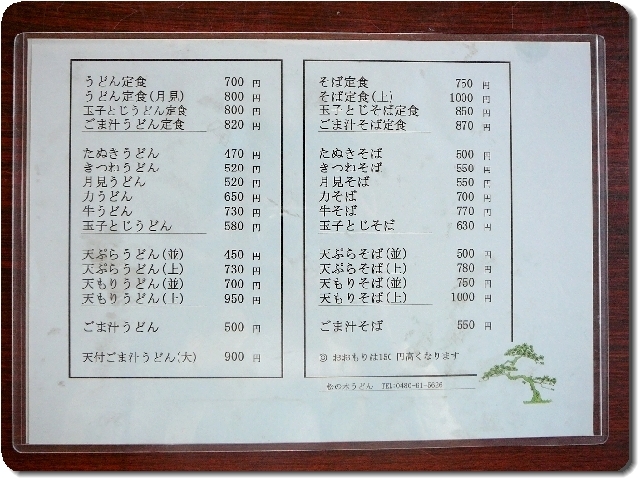 うどん定食 700 円
うどん定食(月見) 800 円
玉子とじうどん定食 800 円
ごま汁うどん定食 820 円
たぬきうどん 470 円
きつねうどん 520 円
月見うどん 520 円
力うどん 650 円
牛うどん 730 円
玉子とじうどん 580 円
天ぷらうどん(並) 450 円
天ぷらうどん(上) 730 円
天もりうどん(並) 700 円
天もりうどん(上) 950 円
ごま汁うどん 500 円
天付ごま汁うどん(大) 900 円
そば定食 750 円
そば定食(上) 1000 円
玉子とじそば定食 850 円
ごま汁そば定食 870 円
たぬきそば 500 円
きつねそば 550 円
月見そば 550 円
力そば 700 円
牛そば 770 円
玉子とじそば 630 円
天ぷらそば(並) 500 円
天ぷらそば(上) 780 円
天もりそば(並) 750 円
天もりそば(上) 1000 円
ごま汁そば 550 円
◎ おおもりは150 円高くなります
松の木うどん TEL:0480-61-5626